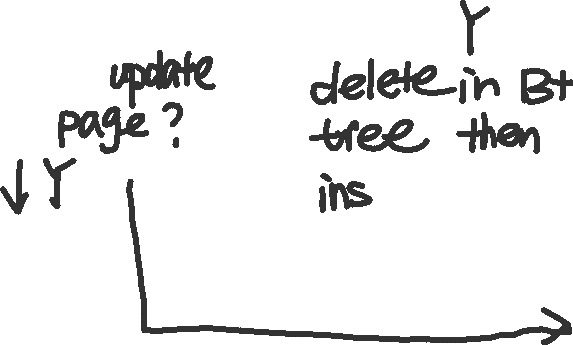 Y
update
page ?
Y
delete in B+
tree then
ins